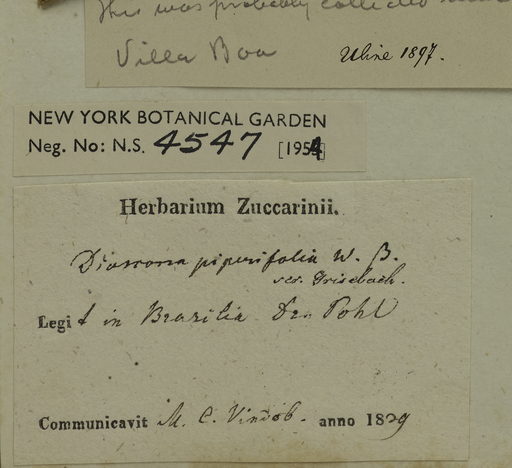 This was probably collected near
Villa Boa Uline 1897.
NEW YORK BOTANICAL GARDEN
Neg. No: N.S. 4547 [1954]
Herbarium Zuccarinii.
Dioscorea piperifolia W. β.
sec. Grisebach.
Legit in Brasilia Dr. Pohl
Communicavit M. C. Vindob. anno 1839